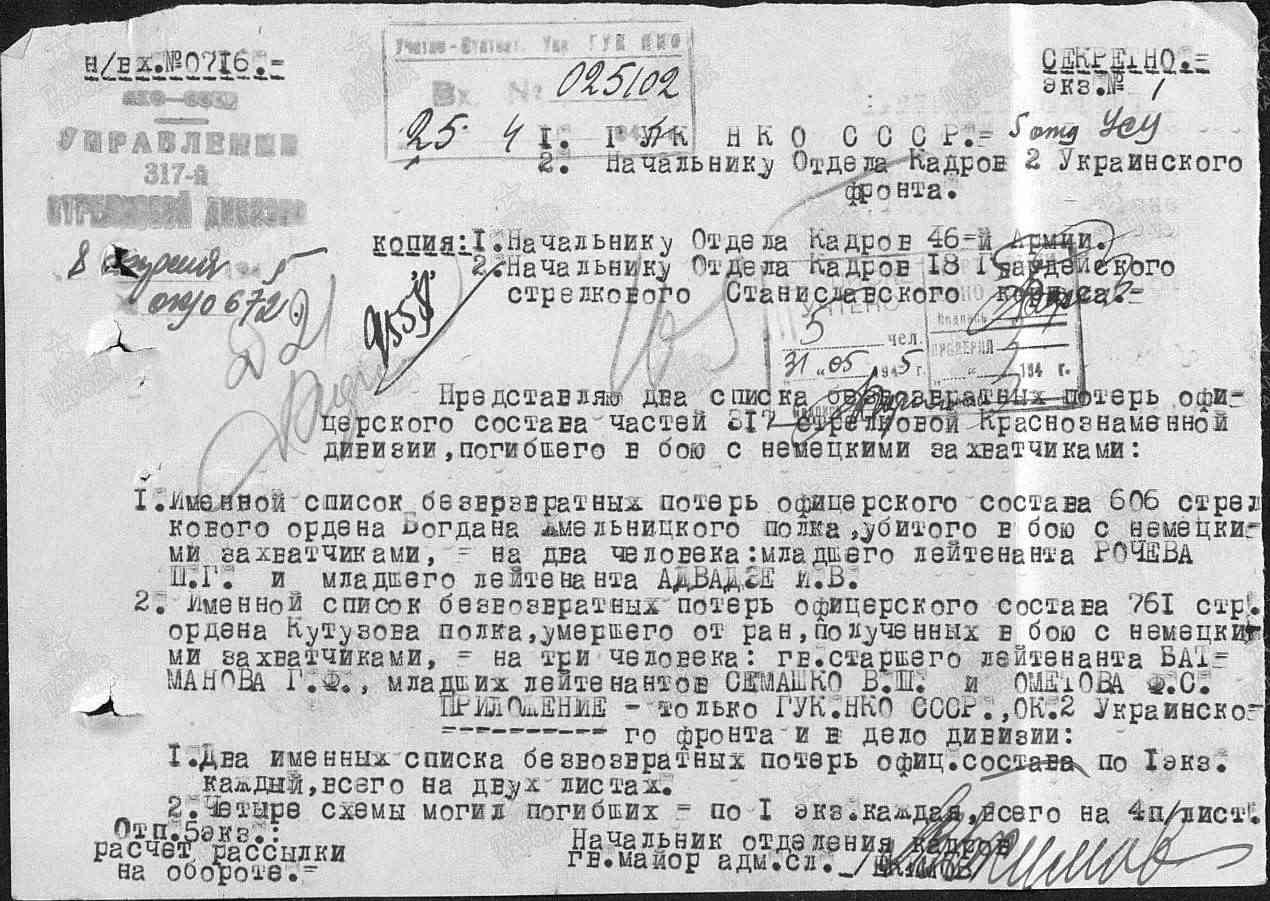 н/вх.№0716.=
Учетно-Статист. Упр ГУК НКО
Вх. № 025102
25 4 194
СЕКРЕТНО.=
экз.№ 1
НКО-СССР
УПРАВЛЕНИЕ
317-й
СТРЕЛКОВОЙ ДИВИЗИИ
8 апреля 1945
№ 0672
1. ГУК НКО СССР.= 5 отд УСУ
2. Начальнику Отдела Кадров 2 Украинского
фронта.
копия:1.Начальнику Отдела Кадров 46-й Армии.
2.Начальнику Отдела Кадров 18 Гвардейского
стрелкового Станиславского корпуса.=
9558
УЧТЕНО
5 чел.
31 "05 1945 г.
Подпись
ПРОВЕРИЛ
" " 194 г.
Представляю два списка безвозвратных потерь офи-
церского состава частей 317 стрелковой Краснознаменной
дивизии,погибшего в бою с немецкими захватчиками:
1.Именной список безврзвратных потерь офицерского состава 606 стрел
кового ордена Богдана Хмельницкого полка,убитого в бою с немецки-
ми захватчиками, = на два человека:младшего лейтенанта РОЧЕВА
П.Г. и младшего лейтенанта АДВАДЗЕ И.В.
2. Именной список безвозвратных потерь офицерского состава 761 стр.
ордена Кутузова полка,умершего от ран,полученных в бою с немецки-
ми захватчиками, = на три человека: гв.старшего лейтенанта БАТ=
МАНОВА Г.Ф., младших лейтенантов СЕМАШКО В.Ш. и ОМЕТОВА Ф.С.
ПРИЛОЖЕНИЕ - только ГУК.НКО СССР.,ОК.2 Украинско-
го фронта и в дело дивизии:
1.Два именных списка безвозвратных потерь офиц.состава по 1экз.
каждый,всего на двух листах.
2.Четыре схемы могил погибших = по 1 экз.каждая,всего на 4п/лист.
Отп.5экз.:
расчет рассылки
на обороте.=
Начальник отделения кадров
гв.майор адм.сл.